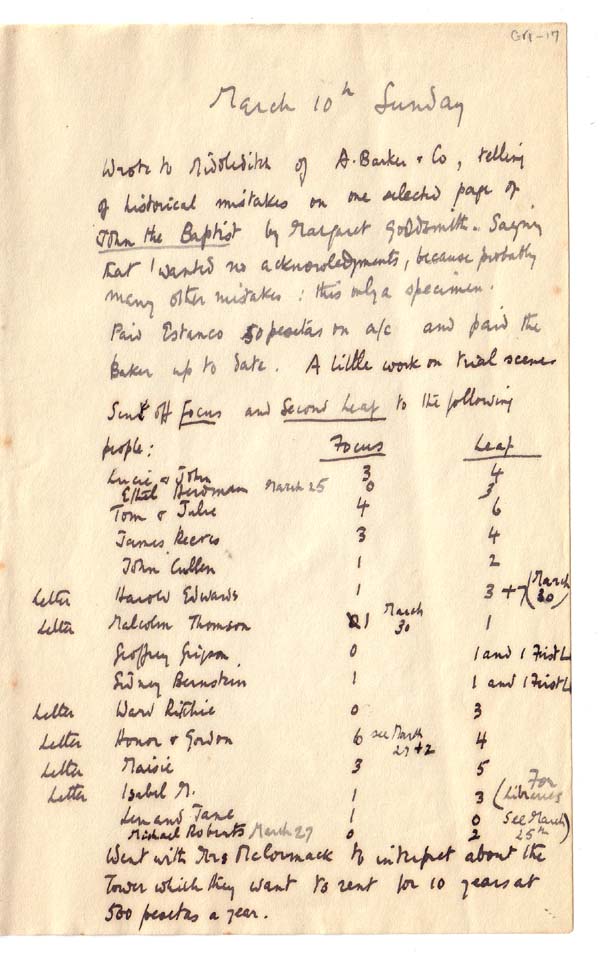 GRI-17
March 10th Sunday
Wrote to Middleditch of A. Barker & Co, telling
of historical mistakes on one selected page of
John the Baptist by Margaret Goldsmith. Saying
that I wanted no acknowledgments, because probably
many other mistakes: this only a specimen.
Paid Estanco 50 pesetas on a/c and paid the
Baker up to date. A little work on trial scenes
Sent off Focus and Second Leaf to the following
people: Focus Leaf
Lucie & John 3 4
Ethel Herdman March 25 0 3
Tom & Julie 4 6
James Reeves 3 4
John Cullen 1 2
Letter Harold Edwards 1 3 + 7 (March 30)
Letter Malcolm Thomson 1 March 30 1
Geoffrey Grigson 0 1 and 1 First L
Sidney Bernstein 1 1 and 1 First L
Letter Ward Ritchie 0 3
Letter Honor & Gordon 6 see March 27 +2 4
Letter Maisie 3 5
Letter Isabel M. 1 3 (For Libraries
Len and Jane 1 0 See March 25th)
Michael Roberts March 27 0 2
Went with Mrs McCormack to interpret about the
Tower which they want to rent for 10 years at
500 pesetas a year.